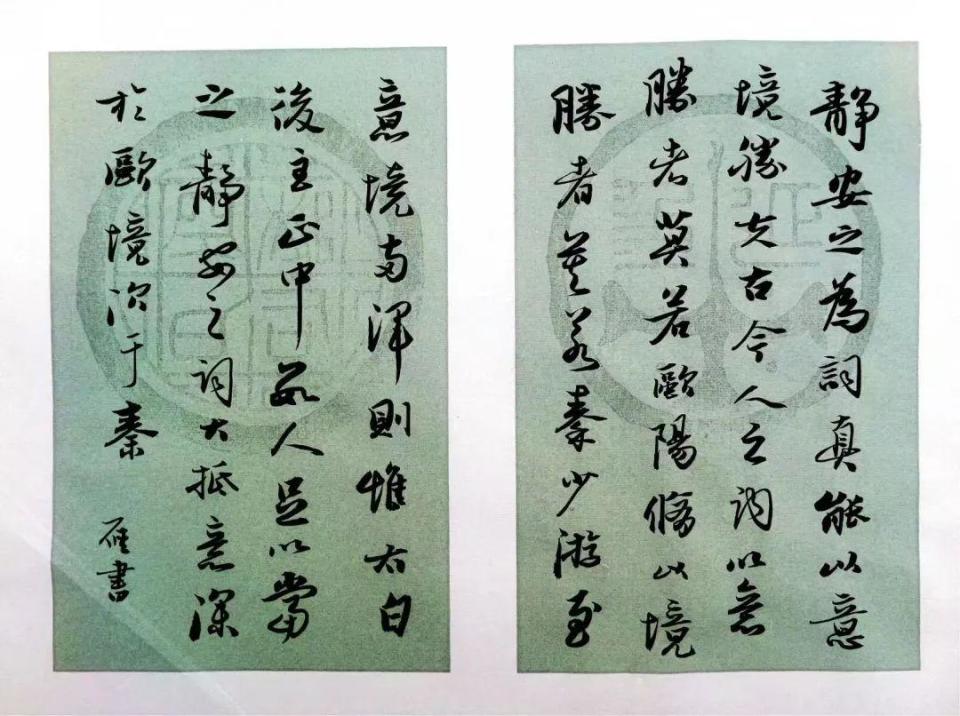 靜安之為詞真能以意
境勝夫古今人之詞以意
勝者莫若歐陽脩以境
勝者莫若秦少游至
意境兩渾則惟太白
後主正中數人足以當
之靜安之詞大抵意深
於歐境次于秦
雁書